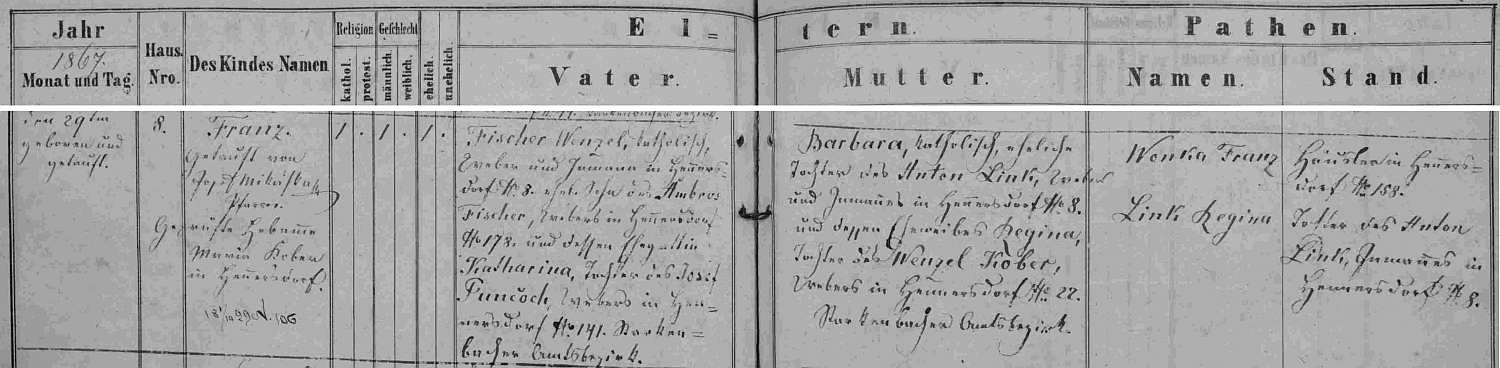 Jahr
1867.
Monat und Tag.
Haus
Nro.
Des Kindes Namen
Religion
kathol.
protest.
Geschlecht
männlich.
weiblich.
ehelich.
unehelich.
El=tern.
Vater.
Mutter.
Pathen.
Namen.
Stand.
den 29tm
geboren und
getauft.
8.
Franz.
Getauft von
Josef Mikiska
Pfarrer.
Geprüfte Hebamme
Maria Kober
in Hennersdorf.
1 . 1 . 1 .
Fischer Wenzel, katholisch,
Weber und Inmann in Henners=
dorf No 8. ehel. Sohn des Ambros
Fischer, Webers in Hennersdorf
No 178. und dessen Ehegattin
Katharina, Tochter des Josef
Funčoch, Webers in Hen=
nersdorf No 141. Starken=
bacher Amtsbezirk.
Barbara, katholisch, eheliche
Tochter des Anton Link, Weber
und Inmannes in Hennersdorf No 8.
und dessen Eheweibes Regina,
Tochter des Wenzel Kober,
Webers in Hennersdorf No 22.
Starkenbacher Amtsbezirk.
Wonka Franz
Link Regina
Häusler in Henners=
dorf No 158.
Tochter des Anton
Link, Inmannes in
Hennersdorf No 8.